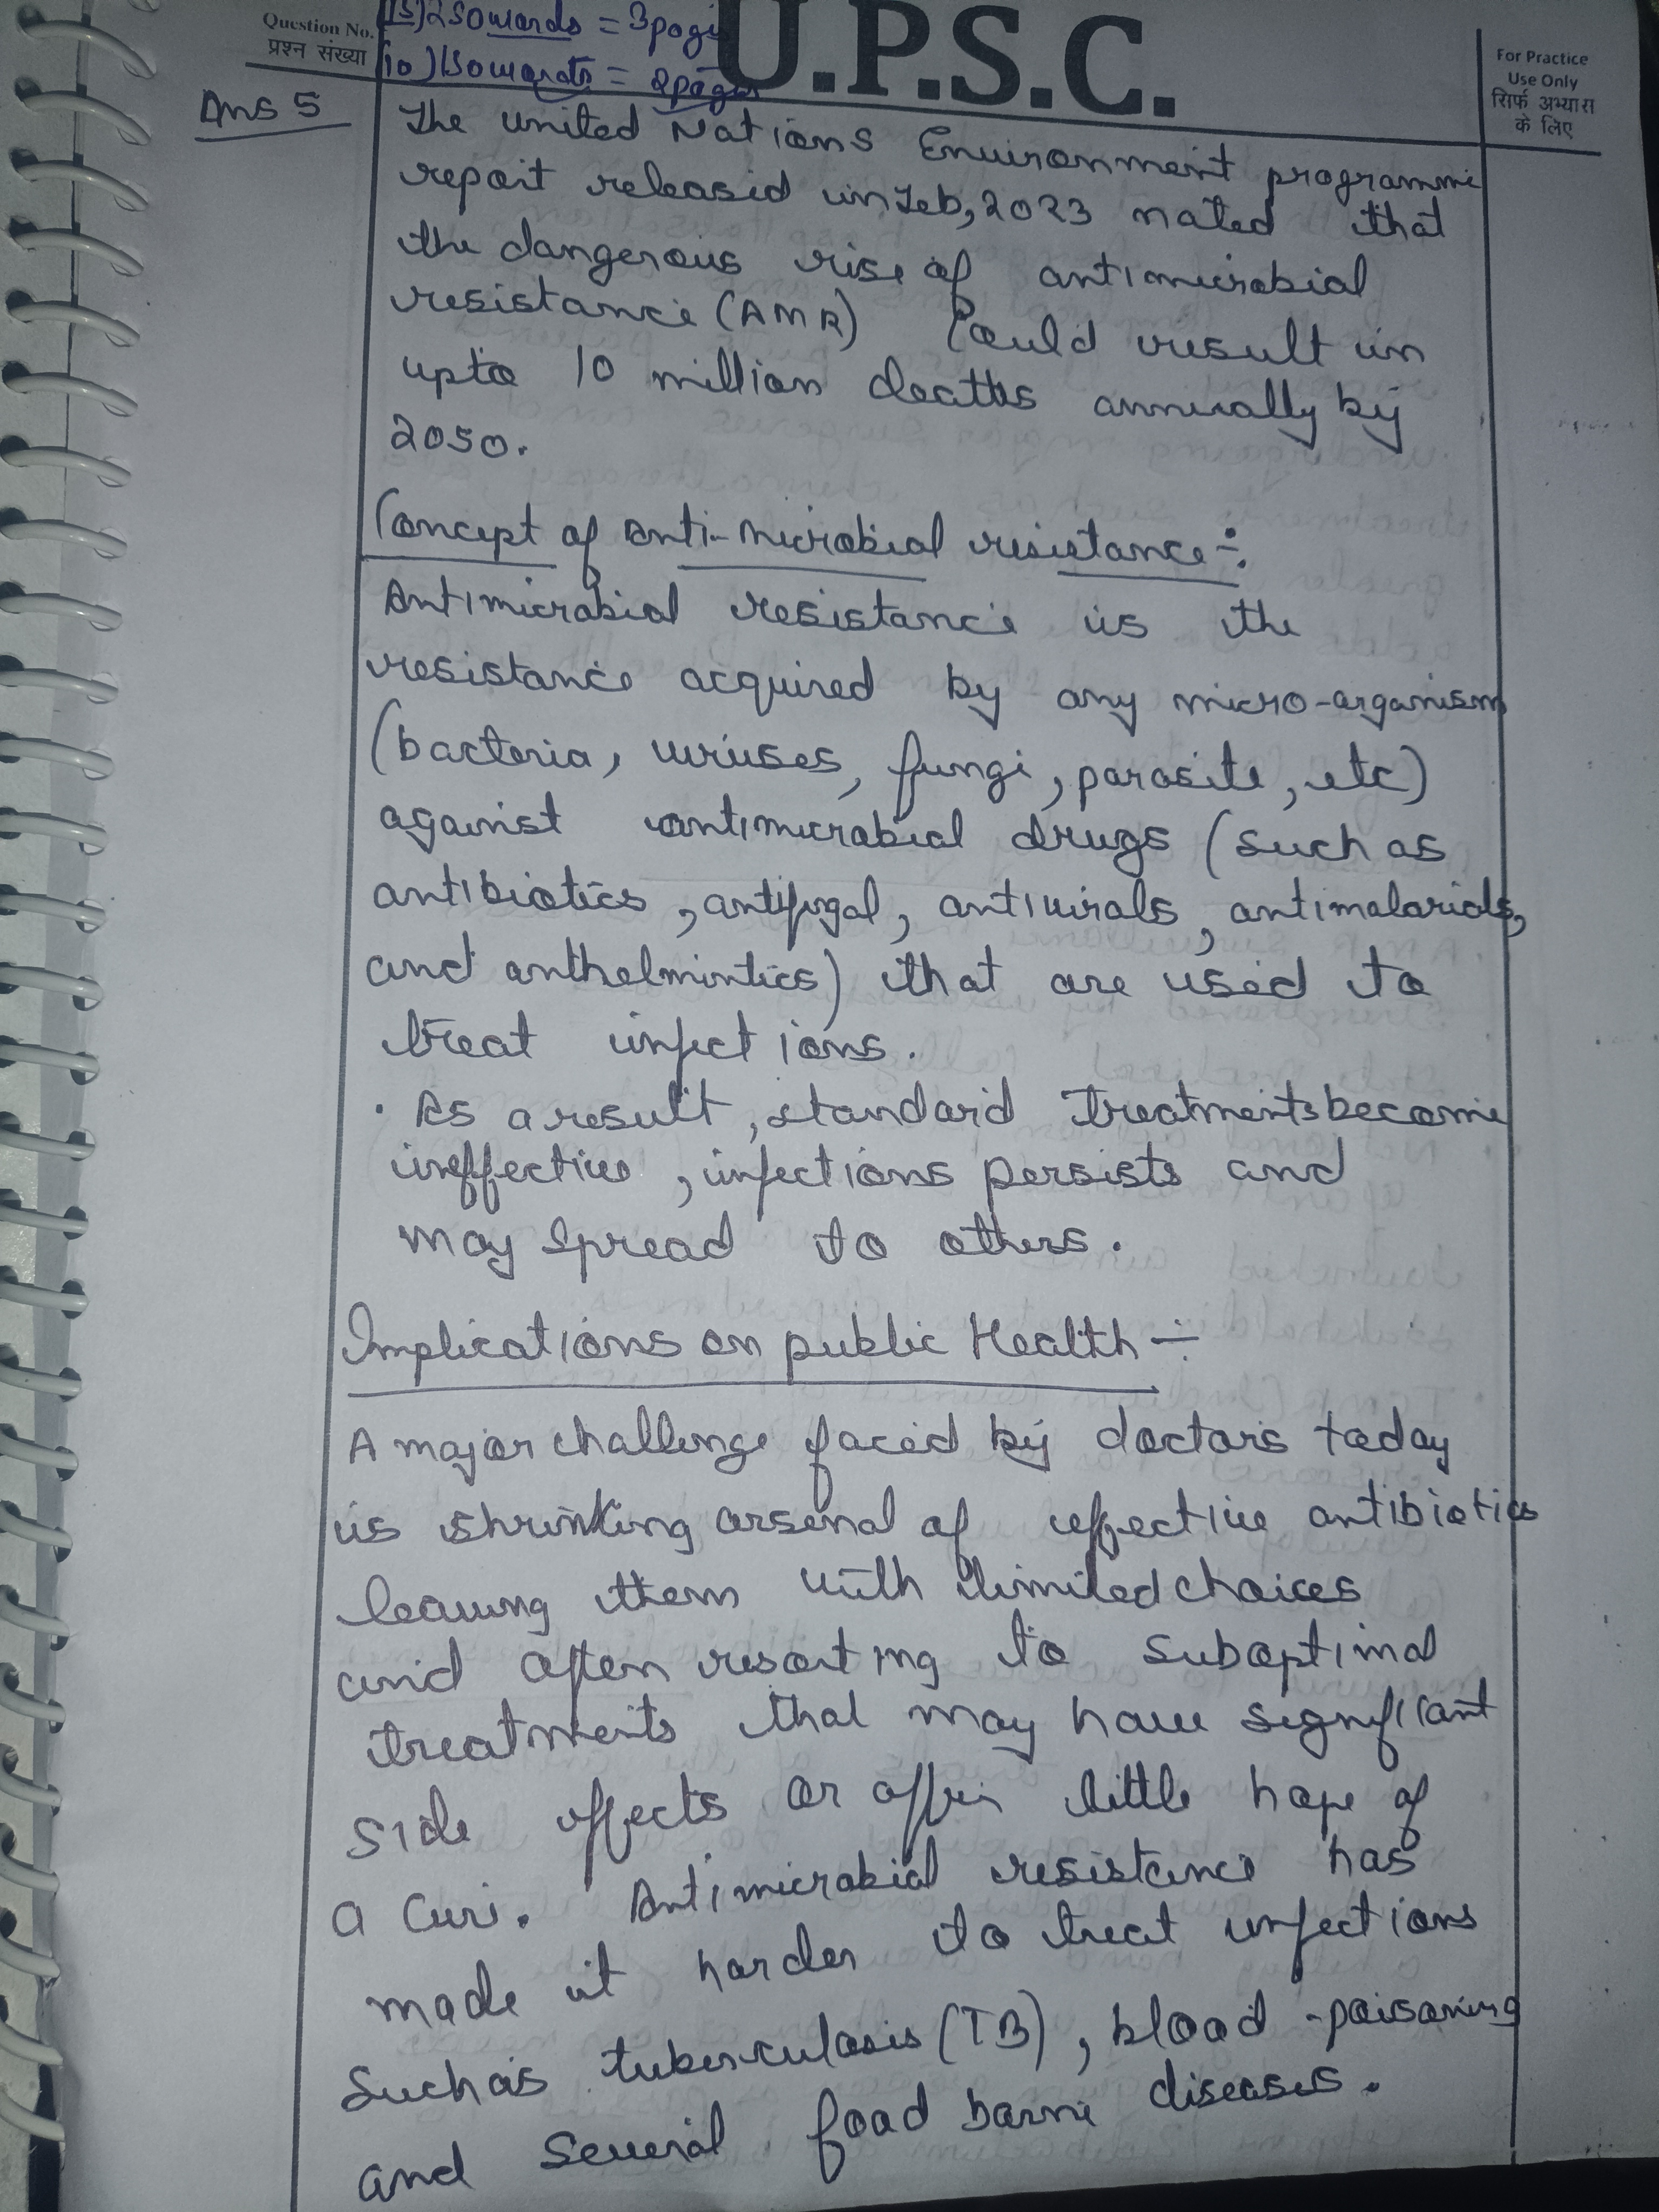 Question No.
प्रश्न संख्या
15) 250 words = 3 pages
10) 150 words = 2 pages
U.P.S.C.
For Practice
Use Only
सिर्फ अभ्यास
के लिए
Ans 5
The united Nations Environment programme
report released in Feb, 2023 noted that
the dangerous rise of antimicrobial
resistance (AMR) Could result in
upto 10 million deaths annually by
2050.
Concept of Anti-microbial resistance :-
Antimicrobial resistance is the
resistance acquired by any micro-organism
(bacteria, viruses, fungi, parasite, etc)
against antimicrobial drugs (such as
antibiotics, antifugal, antivirals, antimalarials,
and anthelmintics) that are used to
treat infections.
· As a result, standard treatments become
ineffective, infections persists and
may spread to others.
Implications on public Health :-
A major challenge faced by doctors today
is shrinking arsenal of effective antibiotics
leaving them with limited choices
and often resorting to suboptimal
treatments that may have significant
side effects or offer little hope of
a cure. Antimicrobial resistance has
made it harder to treat infections
such as tuberculosis (TB), blood-poisoning
and several food borne diseases.